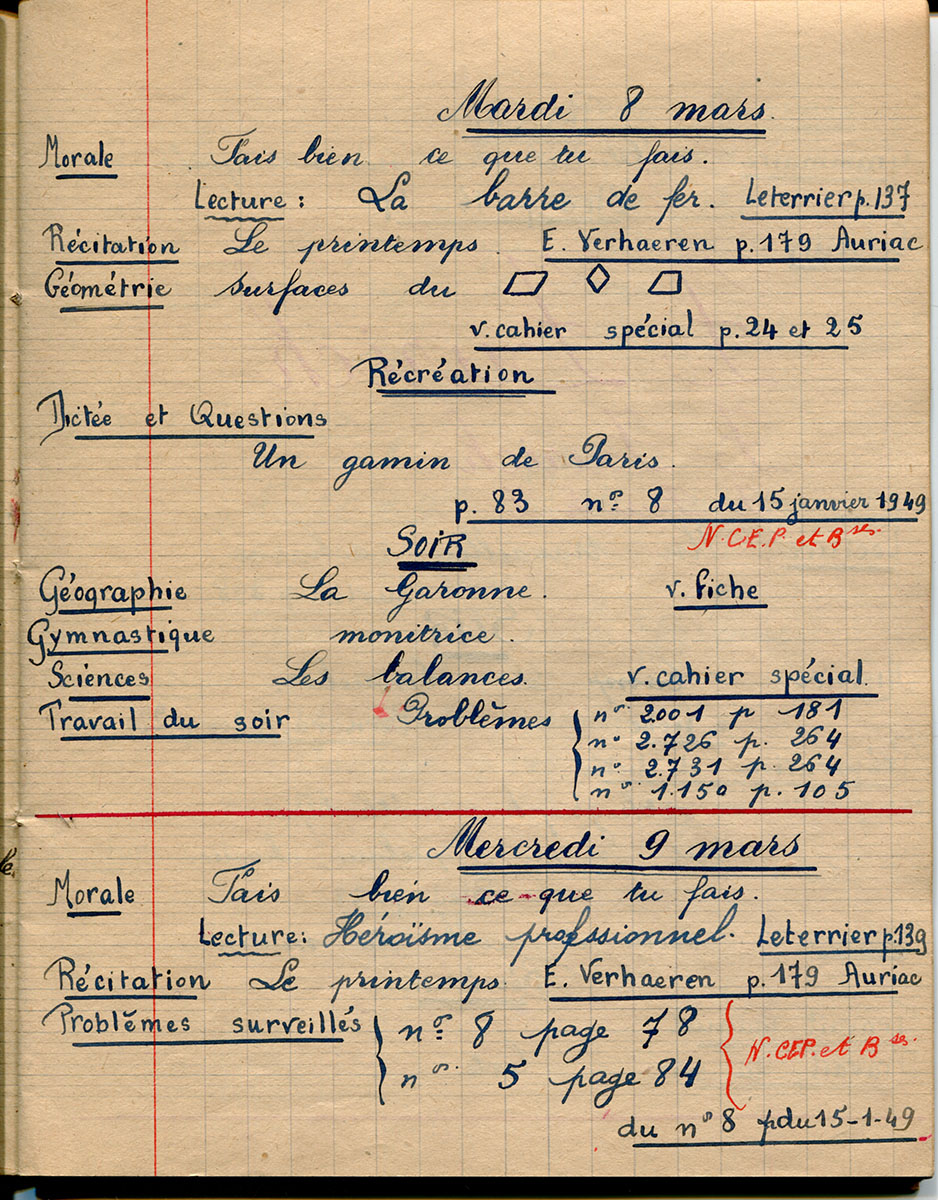 Mardi 8 mars.
Morale Fais bien ce que tu fais.
Lecture : La barre de fer. Leterrier p. 137
Récitation Le printemps. E. Verhaeren p. 179 Auriac
Géométrie surfaces du
v. cahier spécial p. 24 et 25
Récréation
Dictée et Questions
Un gamin de Paris.
p. 83 nº 8 du 15 janvier 1949
N.C.E.P. et Bses.
SOIR
Géographie La Garonne. v. fiche
Gymnastique monitrice.
Sciences Les balances. v. cahier spécial.
Travail du soir Problèmes nº 2.001 p 181
nº 2.726 p. 264
nº 2.731 p. 264
nº 1.150 p. 105
Mercredi 9 mars
Morale Fais bien ce que tu fais.
Lecture : Héroïsme profssionnel. Leterrier p. 139
Récitation Le printemps. E. Verhaeren p. 179 Auriac
Problèmes surveillés nº 8 page 78
nº 5 page 84
N.CEP. et Bses.
du nº 8 pdu 15-1-49